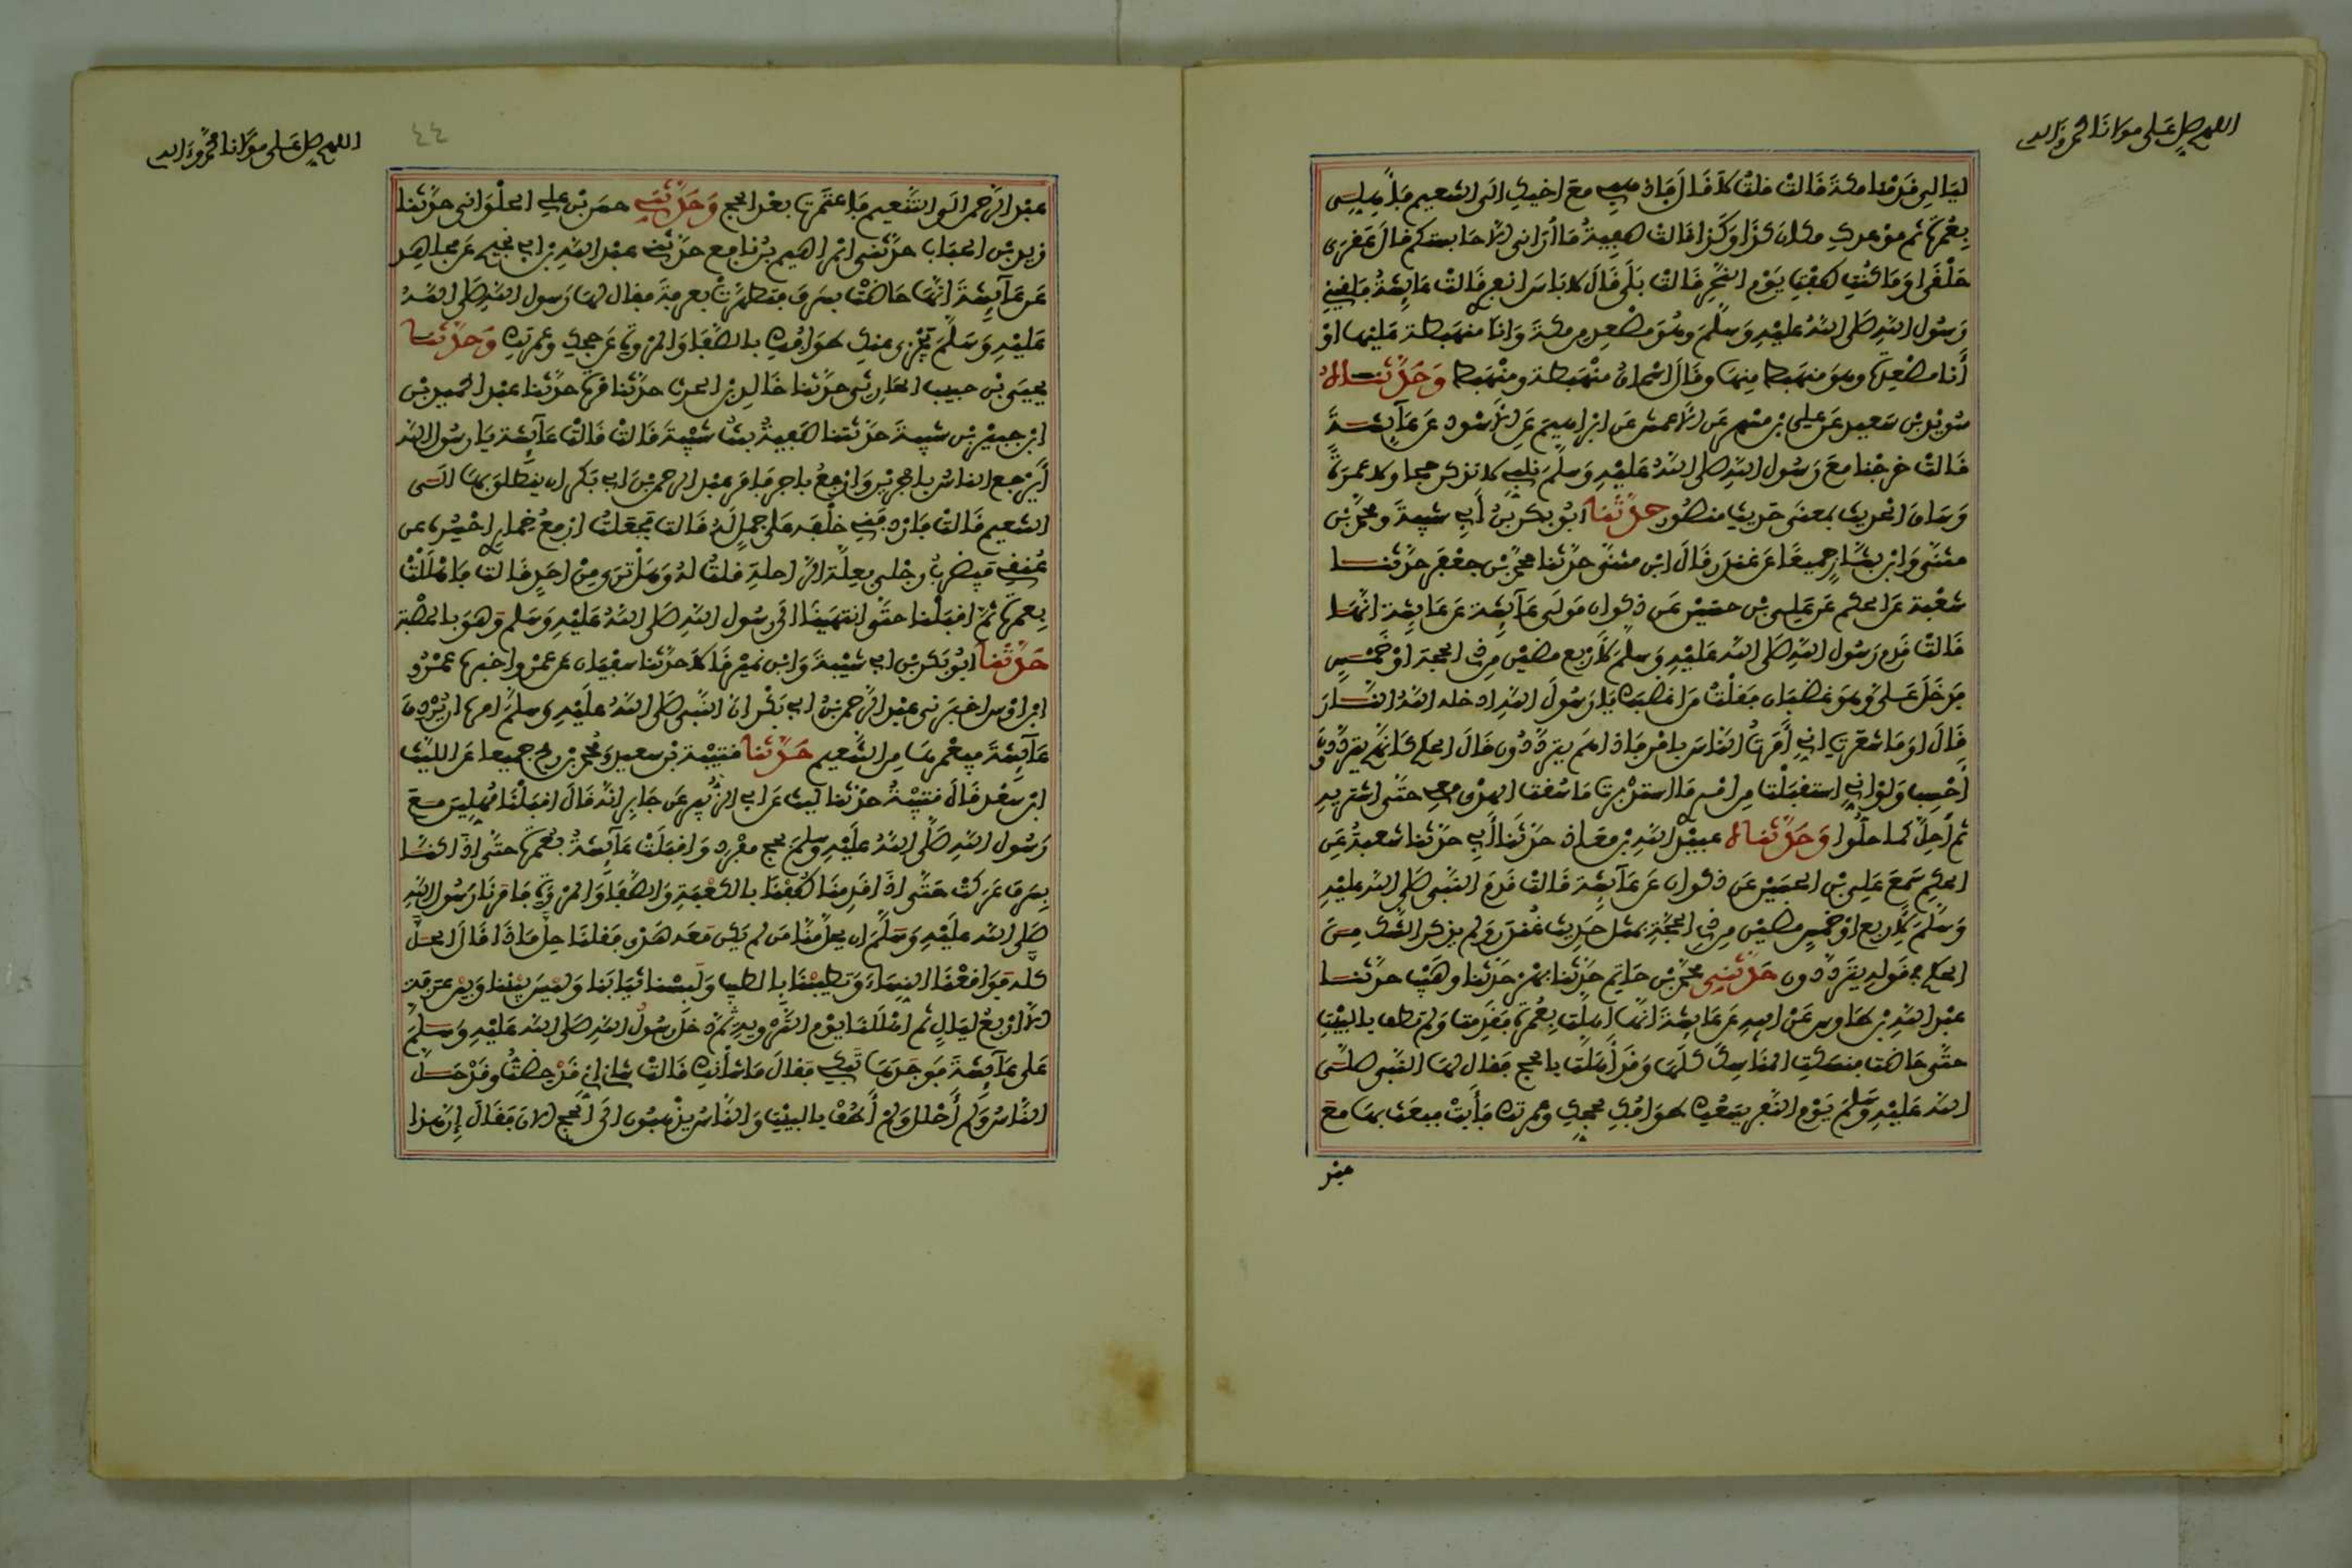 اللهم صل على مولانا محمد وءاله
ليالي قدمنا مكة قالت قلت لا قال فاذهبي مع اخيك الى التنعيم فأهلي
بعمرة ثم موعدك مكان كذا وكذا قالت صفية ما أراني الا حابستكم قال عقرى
حلقى اوما كنت طفت يوم النحر قالت بلى قال لا باس انفري قالت عايشة فلقيني
رسول الله صلى الله عليه وسلم وهو مصعد من مكة وانا منهبطة عليها او
أنا مصعدة وهو منهبط منها وقال اسحاق متهبطة ومتهبط وحدثناه
سويد بن سعيد عن علي بن مسهر عن الاعمش عن ابراهيم عن الاسود عن عآيشة
قالت خرجنا مع رسول الله صلى الله عليه وسلم نلبي لا نذكر حجا ولا عمرة
وساق الحديث بمعنى حديث منصور حدثنا ابو بكر بن أبي شيبة ومحمد بن
مثنى وابن بشار جميعا عن غندر قال ابن مثنى حدثنا محمد بن جعفر حدثنا
شعبة عن الحكم عن علي بن حسين عن ذكوان مولى عآيشة عن عايشة انها
قالت قدم رسول الله صلى الله عليه وسلم لاربع مضين من ذي الحجة او خمس
فدخل علي وهو غضبان فقلت من اغضبك يا رسول الله ادخله الله النار
قال اوما شعرت اني أمرت الناس بامر فاذا هم يترددون قال الحكم كأنهم يترددون
أحسب ولو اني استقبلت من امري ما استدبرت ما سقت الهدي معي حتى اشتريه
ثم أحل كما حلوا وحدثناه عبيد الله بن معاذ حدثنا أبي حدثنا شعبة عن
الحكم سمع علي بن الحسين عن ذكوان عن عآيشة قالت قدم النبي صلى الله عليه
وسلم لاربع او خمس مضين من ذي الحجة بمثل حديث غندر ولم يذكر الشك من
الحكم في قوله يترددون حدثني محمد بن حاتم حدثنا بهز حدثنا وهيب حدثنا
عبد الله بن طاوس عن ابيه عن عايشة انها اهلت بعمرة فقدمت ولم تطف بالبيت
حتى حاضت فنسكت المناسك كلها وقد أهلت بالحج فقال لها النبي صلى
الله عليه وسلم يوم النفر يسعك طوافك لحجك وعمرتك فأبت فبعث بها مع
عبد
اللهم صل على مولانا محمد وءاله
٤٤
عبد الرحمن الى التنعيم فاعتمرت بعد الحج وحدثني حسن بن علي الحلواني حدثنا
زيد بن الحباب حدثني ابراهيم بن نافع حدثني عبد الله بن ابي نجيح عن مجاهد
عن عآيشة انها حاضت بسرف فتطهرت بعرفة فقال لها رسول الله صلى الله
عليه وسلم يجزئ عنك طوافك بالصفا والمروة عن حجك وعمرتك وحدثنا
يحيى بن حبيب الحارثي حدثنا خالد بن الحرث حدثنا قرة حدثنا عبد الحميد بن
ابن جبير بن شيبة حدثتنا صفية بنت شيبة قالت قالت عآيشة يا رسول الله
أيرجع الناس باجرين وارجع باجر فامر عبد الرحمن بن ابي بكر ان ينطلق بها الى
التنعيم قالت فاردفني خلفه على جمل له قالت فجعلت ارفع خماري احسره عن
عنقي فيضرب رجلي بعلة الراحلة قلت له وهل ترى من احد قالت فاهللت
بعمرة ثم اقبلنا حتى انتهينا الى رسول الله صلى الله عليه وسلم وهو بالحصبة
حدثنا ابو بكر بن ابي شيبة وابن نمير قالا حدثنا سفيان عن عمرو اخبره عمرو
ابن اوس اخبرني عبد الرحمن بن ابي بكر ان النبي صلى الله عليه وسلم امره ان يردف
عآيشة فيعمرها من التنعيم حدثنا قتيبة بن سعيد ومحمد بن رمح جميعا عن الليث
ابن سعد قال قتيبة حدثنا ليث عن ابي الزبير عن جابر انه قال اقبلنا مهلين مع
رسول الله صلى الله عليه وسلم بحج مفرد واقبلت عآيشة بعمرة حتى اذا كنا
بسرف عركت حتى اذا قدمنا طفنا بالكعبة والصفا والمروة فامرنا رسول الله
صلى الله عليه وسلم ان يحل منا من لم يكن معه هدي فقلنا حل ماذا قال الحل
كله فواقعنا النساء وتطيبنا بالطيب ولبسنا ثيابنا وليس بيننا وبين عرفة
الا اربع ليال ثم اهللنا يوم التروية ثم دخل رسول الله صلى الله عليه وسلم
على عآيشة فوجدها تبكي فقال ما شأنك قالت شاني اني قد حضت وقد حل
الناس ولم أحلل ولم أطف بالبيت والناس يذهبون الى الحج الان فقال إن هذا